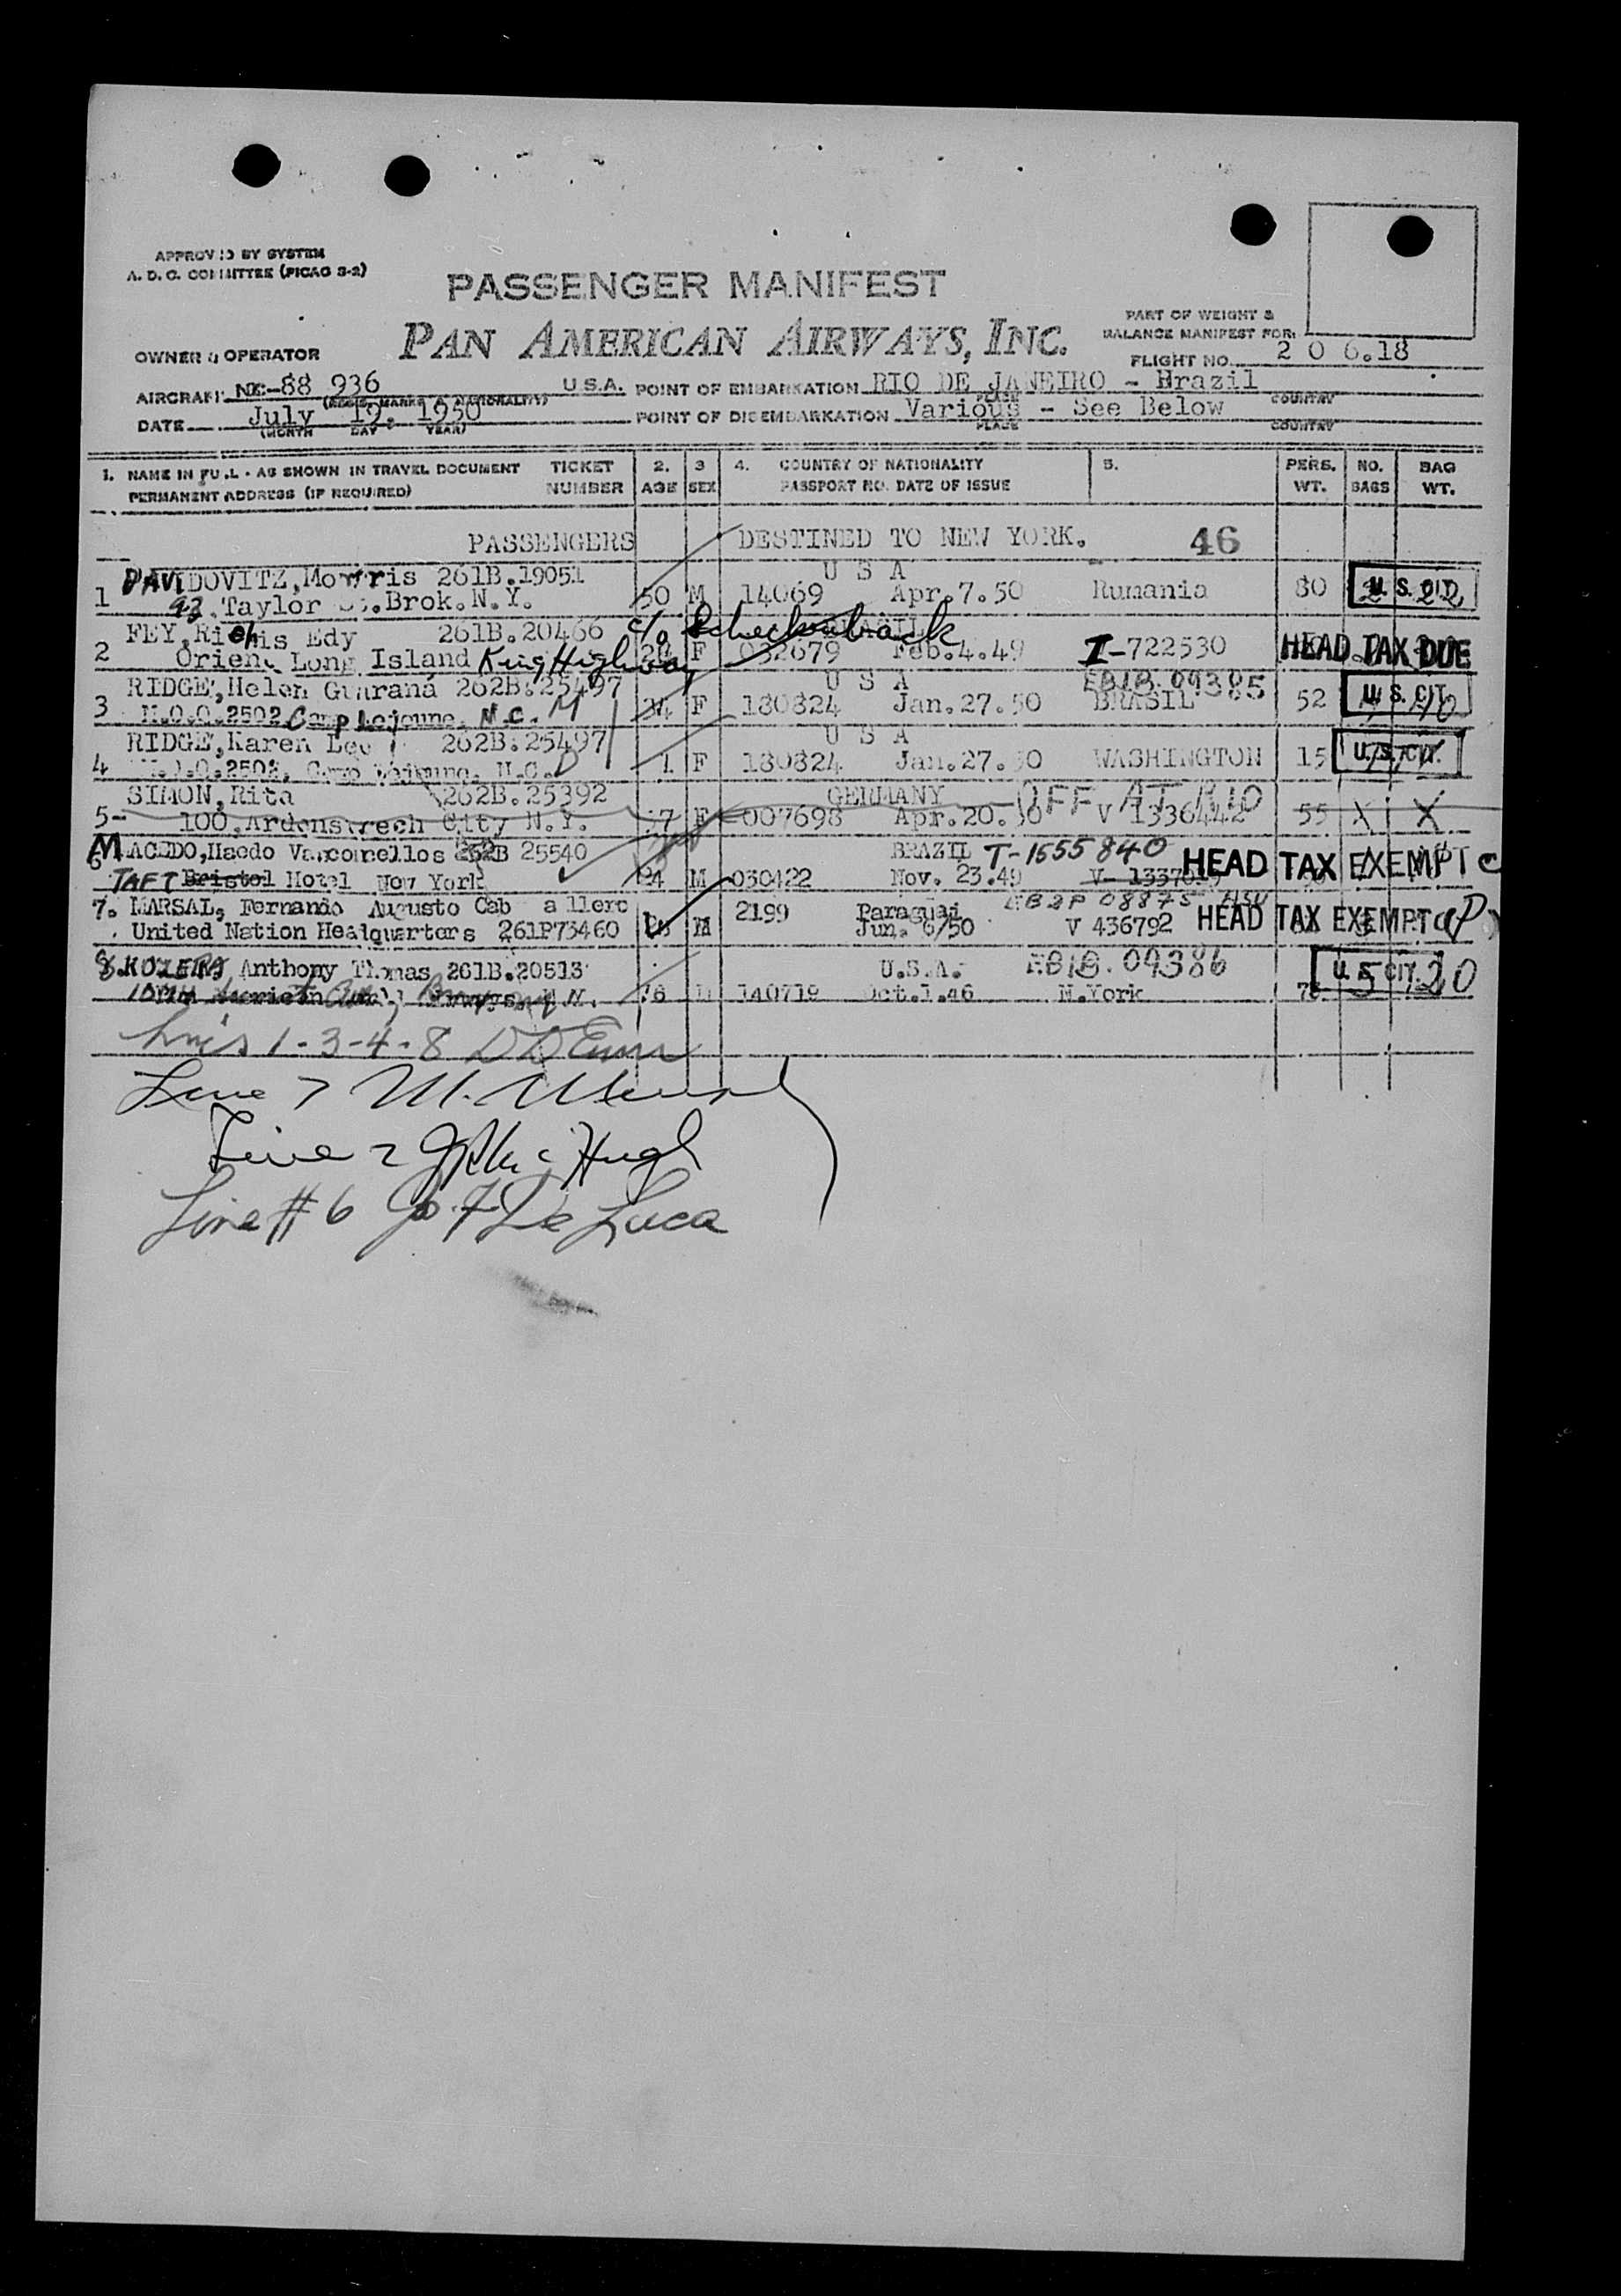 APPROVED BY SYSTEM
A. D. C. COMMITTEE (PICAO 3-2)
PASSENGER MANIFEST
PAN AMERICAN AIRWAYS, INC.
PART OF WEIGHT &
BALANCE MANIFEST FOR:
OWNER & OPERATOR
FLIGHT NO. 2 0 6.18
AIRCRAFT NC-88 936 U.S.A. POINT OF EMBARKATION RIO DE JANEIRO - Brazil
(REGIS. MARKS & NATIONALITY) PLACE COUNTRY
DATE July 19. 1950 POINT OF DISEMBARKATION Various - See Below
(MONTH DAY YEAR) PLACE COUNTRY
1. NAME IN FULL - AS SHOWN IN TRAVEL DOCUMENT TICKET 2. 3 4. COUNTRY OF NATIONALITY 5. PERS. NO. BAG
PERMANENT ADDRESS (IF REQUIRED) NUMBER AGE SEX PASSPORT NO. DATE OF ISSUE WT. BAGS WT.
PASSENGERS DESTINED TO NEW YORK. 46
DAVIDOVITZ, Morris 261B.19051 U S A
1 93 Taylor St. Brok. N.Y. 50 M 14069 Apr.7.50 Rumania 80 U. S. CIT.
FEY, Richis Edy 261B.20466 c/o BRASIL
2 Orient Long Island King Highway F 032679 Feb.4.49 I-722530 HEAD TAX DUE
RIDGE, Helen Guaraná 262B.25497 M U S A EB1B. 09385
3 M.O.Q.2502 Camp Lejeune. N.C. F 180824 Jan.27.50 BRASIL 52 U. S. CIT.
RIDGE, Karen Lee 262B.25497 U S A
4 M.O.Q.2502, Camp Lejeune. N.C. D 1 F 180824 Jan.27.50 WASHINGTON 15 U. S. CIT.
SIMON, Rita 262B.25392 GERMANY OFF AT RIO
5- 100, City N.Y. F 007698 Apr.20.50 V 1336442 55 X X
6 MACEDO, Haedo Vasconcellos 262B 25540 BRAZIL T-1555840 HEAD TAX EXEMPT C
TAFT Bristol Hotel New York 24 M 030422 Nov. 23.49
7. MARSAL, Fernando Augusto Caballero 2199 Paraguai EB2P 08875
United Nation Headquarters 261P73460 M Jun. 6/50 V 436792 HEAD TAX EXEMPT (P)
8. KOZERA Anthony Thomas 261B.20513 U.S.A. EB1B. 09386 U. S. CIT.
140719 Oct.1.46 N.York 5 20
1-3-4-8
Line 7 M.
Line 2 McHugh
Line # 6 De Luca